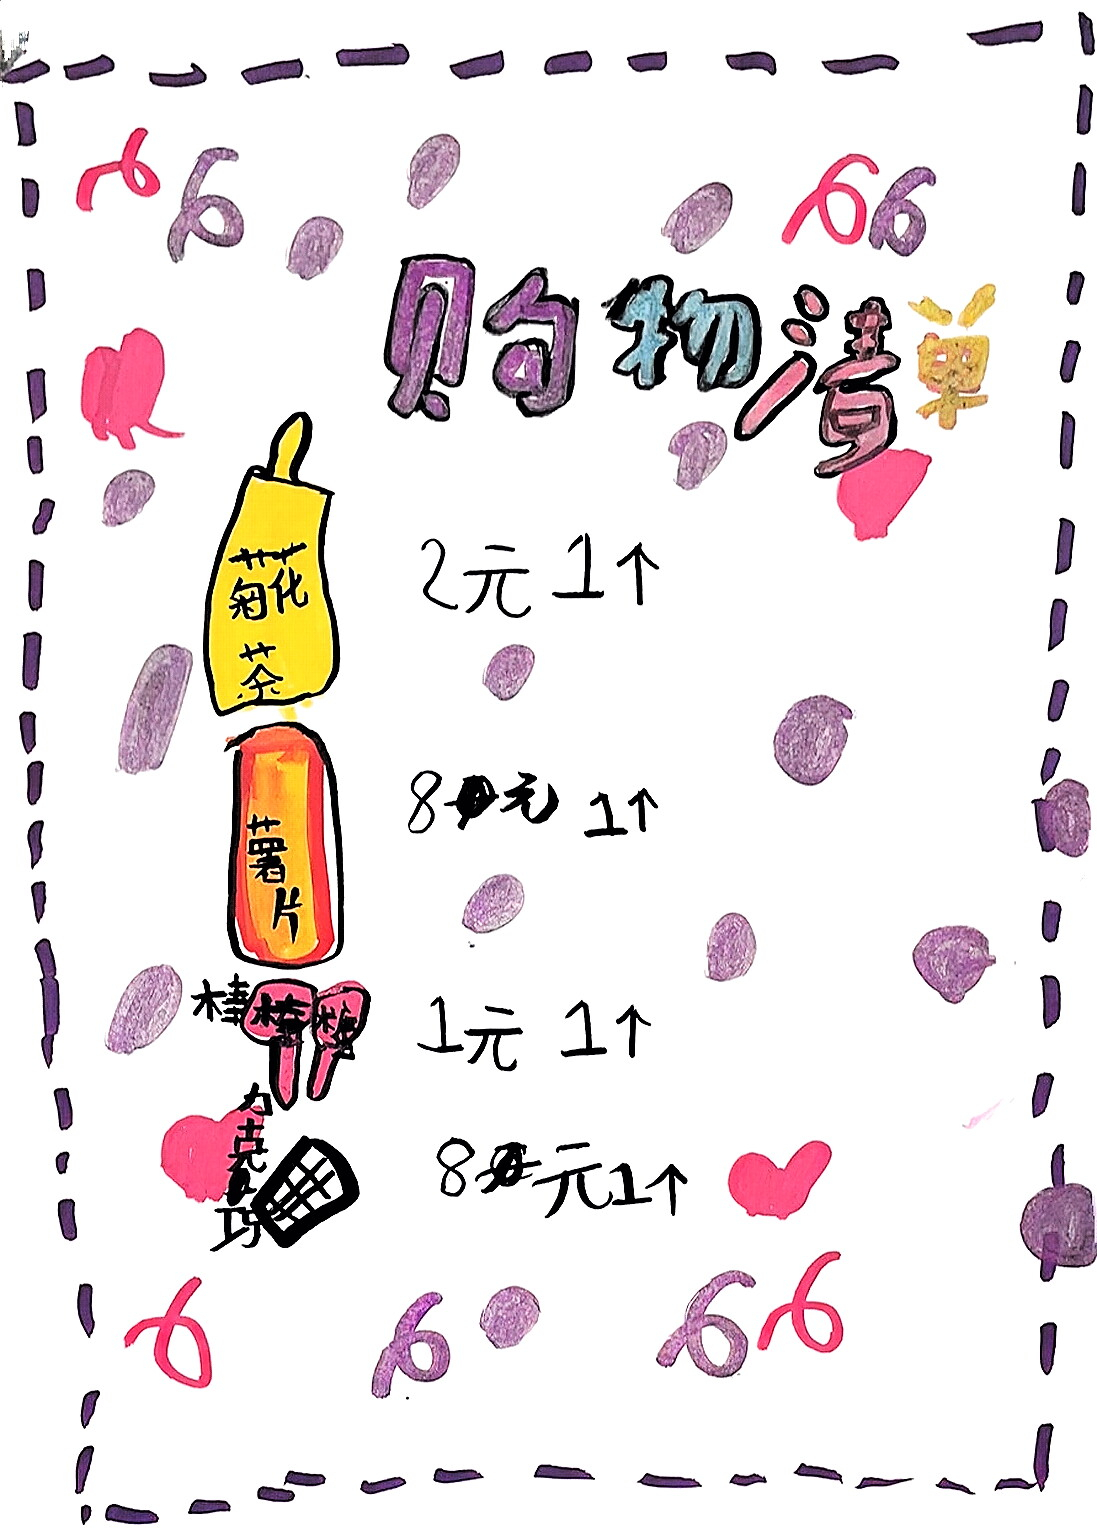 66
66
购物清单
菊花
茶
2元 1个
薯
片
8元 1个
棒棒糖
1元 1个
巧克力
8元 1个
6
6
66